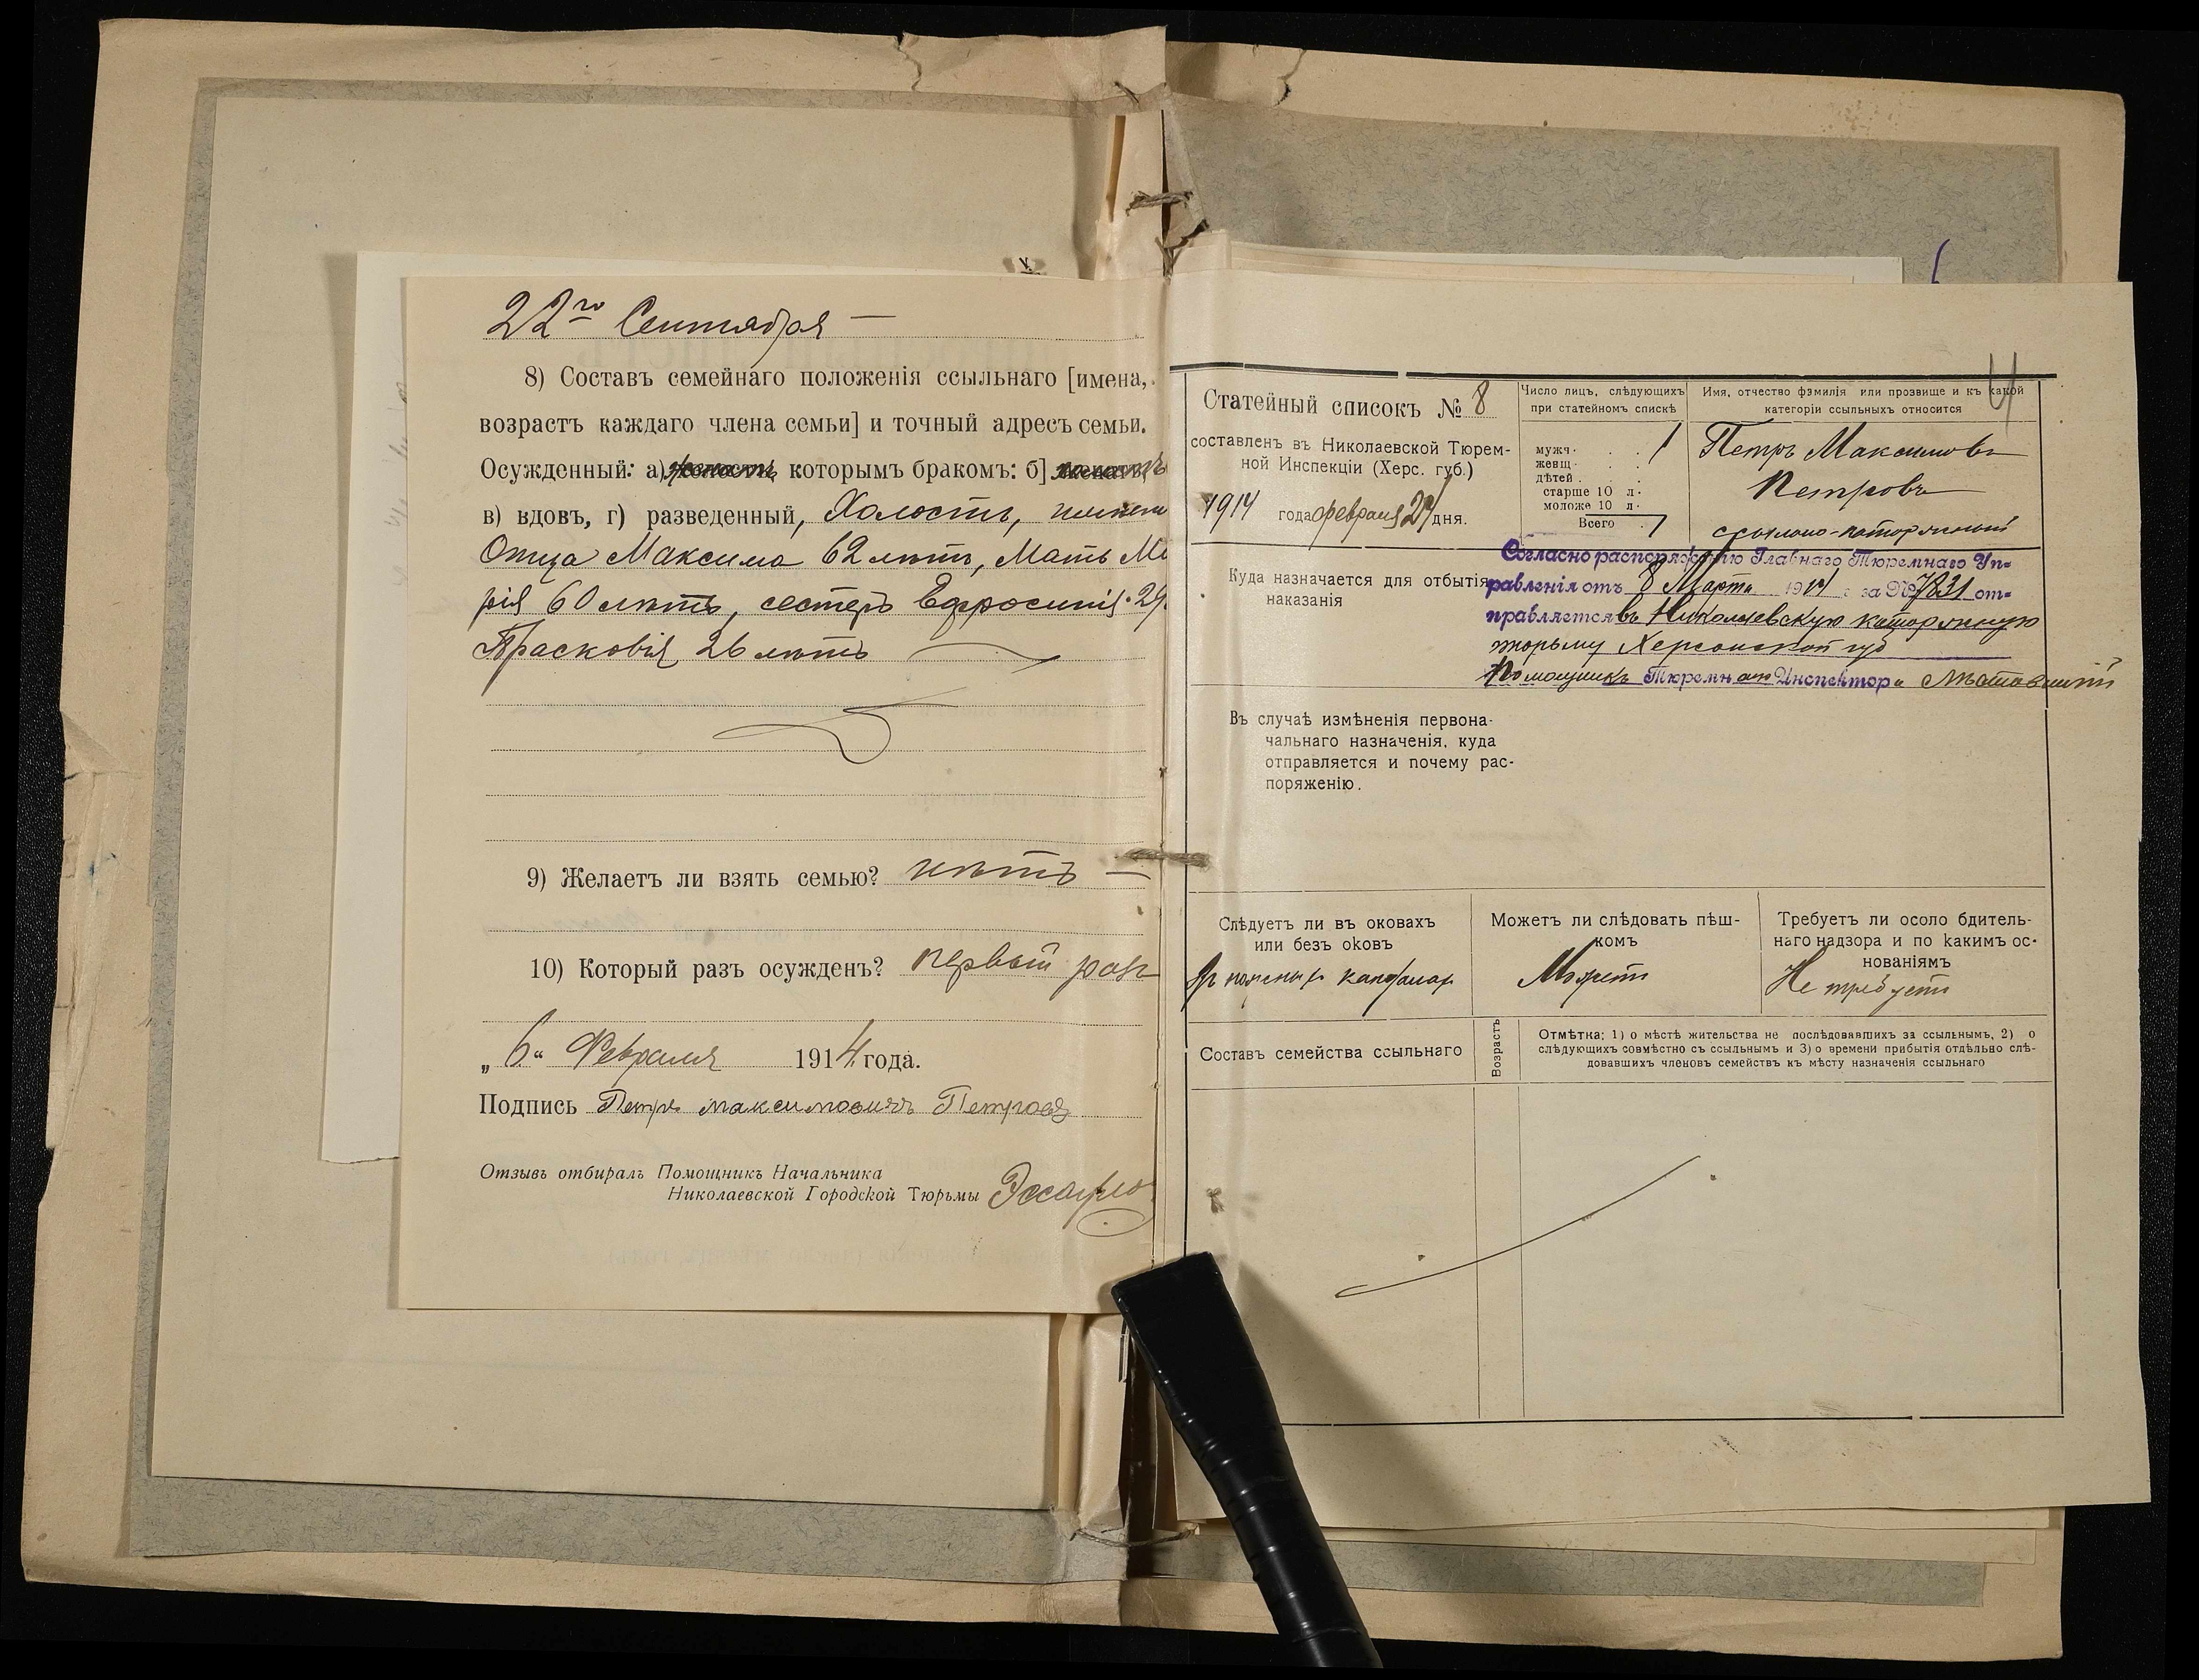 22го Сентября —
8) Составъ семейнаго положенія ссыльнаго [имена,
возрастъ каждаго члена семьи] и точный адресъ семьи.
Осужденный: а) которымъ бракомъ: б]
в) вдовъ, г) разведенный, Холостъ,
Отца Максима 62 лѣтъ, Мать Ма
рія 60 лѣтъ, сестеръ Ефросинія 29
Прасковія 26 лѣтъ
9) Желаетъ ли взять семью? нѣтъ —
10) Который разъ осужденъ? первый разъ
„6“ Февраля 1914 года.
Подпись Петръ максимовичъ Петровъ
Отзывъ отбиралъ Помощникъ Начальника
Николаевской Городской Тюрьмы
4
Статейный списокъ № 8
составленъ въ Николаевской Тюрем-
ной Инспекціи (Херс. губ.)
1914 года февраля 27 дня.
Число лицъ, слѣдующихъ
при статейномъ спискѣ
мужч. . . 1
женщ. . .
дѣтей . . .
старше 10 л.
моложе 10 л.
Всего . 1
Имя, отчество фамилія или прозвище и къ какой
категоріи ссыльныхъ относится
Петръ Максимовъ
Петровъ
ссыльно-каторжный
Куда назначается для отбытія
наказанія
Согласно распоряженію Главнаго Тюремнаго Уп=
равленія отъ 8 Марта 1914 г. за № 7831 от=
правляется въ Николаевскую каторжную
тюрьму Херсонской губ
Помощникъ Тюремнаго Инспектора
Въ случаѣ измѣненія первона-
чальнаго назначенія, куда
отправляется и почему рас-
поряженію.
Слѣдуетъ ли въ оковахъ
или безъ оковъ
Въ ножныхъ кандалах
Можетъ ли слѣдовать пѣш-
комъ
Можетъ
Требуетъ ли осоло бдитель-
наго надзора и по какимъ ос-
нованіямъ
Не требуетъ
Составъ семейства ссыльнаго
Возрастъ
Отмѣтка: 1) о мѣстѣ жительства не послѣдовавшихъ за ссыльнымъ, 2) о
слѣдующихъ совмѣстно съ ссыльнымъ и 3) о времени прибытія отдѣльно слѣ-
довавшихъ членовъ семействъ къ мѣсту назначенія ссыльнаго